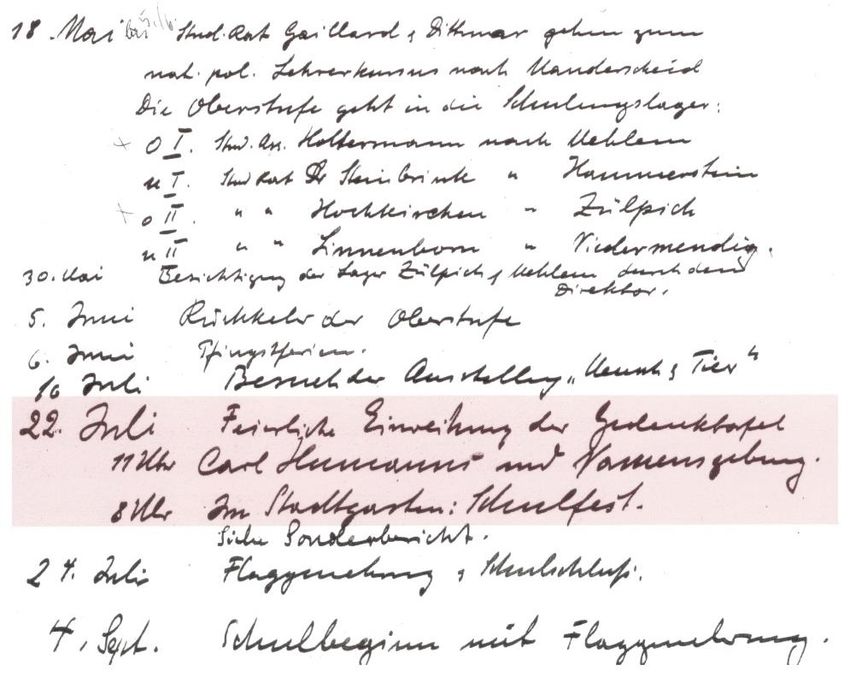 18. Mai bis 5./6. Stud. Rat Gaillard & Dittmar gehen zum
nat. pol. Lehrerkursus nach Manderscheid
Die Oberstufe geht in die Schulungslager:
+ O I. Stud. Ass. Holtermann nach Mehlem
U I. Stud Rat Dr Steinbrink " Hammerstein
+ O II. " " Hochkirchen " Zülpich
U II " " Linnenborn " Niedermendig.
30. Mai Besichtigung der Lager Zülpich & Mehlem durch den
Direktor.
5. Juni Rückkehr der Oberstufe
6. Juni Pfingstferien.
10 Juli Besuch der Ausstellung „Mensch & Tier“
22. Juli Feierliche Einweihung der Gedenktafel
11 Uhr Carl Humanns und Namensgebung.
8 Uhr Im Stadtgarten: Schulfest.
Siehe Sonderbericht.
24. Juli Flaggenehrung & Schulschluß.
4. Sept. Schulbeginn mit Flaggenehrung.